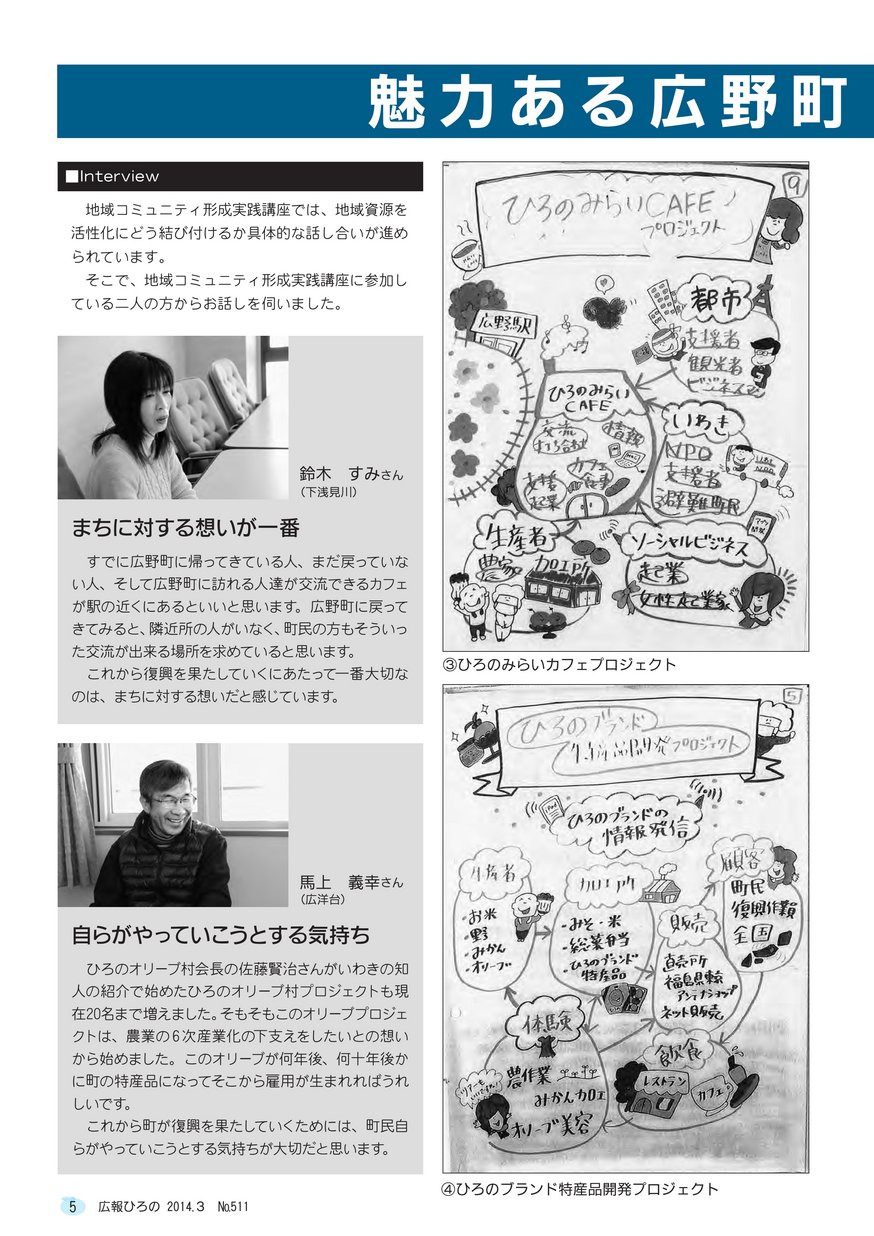 魅力ある広野町
■Interview
地域コミュニティ形成実践講座では、地域資源を
活性化にどう結び付けるか具体的な話し合いが進め
られています。
そこで、地域コミュニティ形成実践講座に参加し
ている二人の方からお話しを伺いました。
鈴木　すみさん
（下浅見川）
まちに対する想いが一番
すでに広野町に帰ってきている人、まだ戻っていな
い人、そして広野町に訪れる人達が交流できるカフェ
が駅の近くにあるといいと思います。広野町に戻って
きてみると、隣近所の人がいなく、町民の方もそういっ
た交流が出来る場所を求めていると思います。
これから復興を果たしていくにあたって一番大切な
のは、まちに対する想いだと感じています。
馬上　義幸さん
（広洋台）
自らがやっていこうとする気持ち
ひろのオリーブ村会長の佐藤賢治さんがいわきの知
人の紹介で始めたひろのオリーブ村プロジェクトも現
在20名まで増えました。そもそもこのオリーブプロジェ
クトは、農業の6次産業化の下支えをしたいとの想い
から始めました。このオリーブが何年後、何十年後か
に町の特産品になってそこから雇用が生まれればうれ
しいです。
これから町が復興を果たしていくためには、町民自
らがやっていこうとする気持ちが大切だと思います。
9
ひろのみらいCAFE
プロジェクト
広野駅
都市
支援者
観光者
ビジネスマン
ひろのみらい
CAFE
交流
打ち合わせ
情報
カフェ
食事
支援
起業
いわき
NPO
支援者
避難町民
生産者
農家
加工所
ソーシャルビジネス
起業
女性起業家
③ひろのみらいカフェプロジェクト
5
ひろのブランド
特産品開発プロジェクト
ひろのブランドの
情報発信
生産者
・お米
・野
・みかん
・オリーブ
加工所
・みそ・米
・総菜弁当
・ひろのブランド
特産品
販売
直売所
福島県
アンテナショップ
ネット販売
顧客
町民
復興作業員
全国
体験
農作業
みかん加工
オリーブ美容
飲食
レストラン
カフェ
④ひろのブランド特産品開発プロジェクト
5　広報ひろの 2014.3　No.511